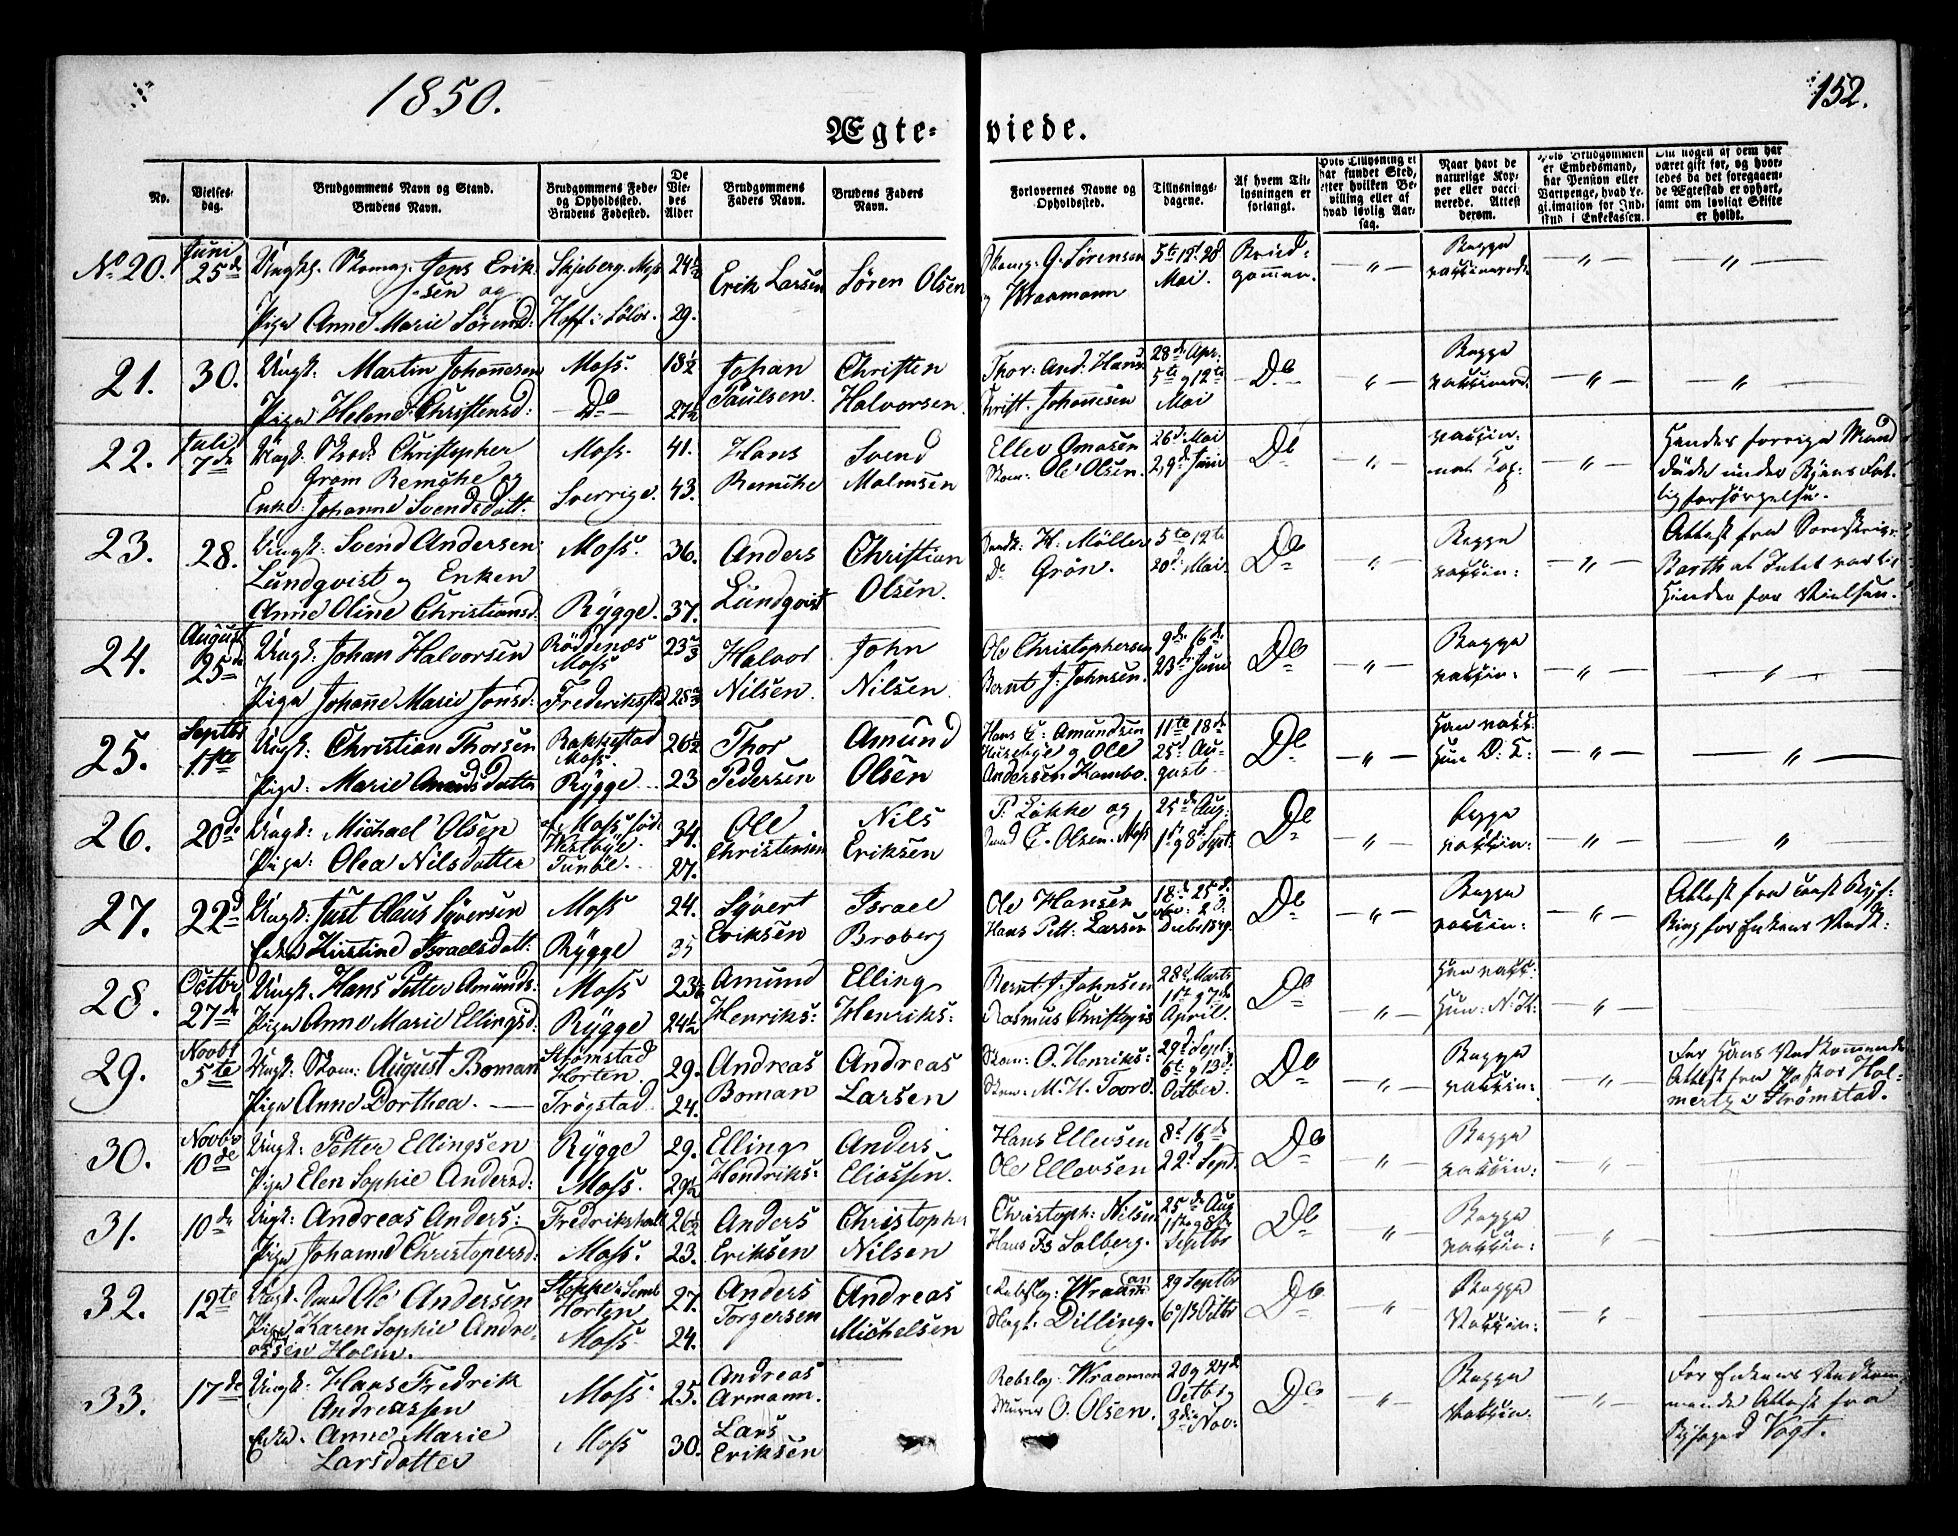 1850.
152.
Ægte- viede.
No.
Vielses-
dag.
Brudgommens Navn og Stand.
Brudens Navn.
Brudgommens Føde-
og Opholdssted.
Brudens Fødested.
De
Vie-
des
Alder
Brudgommens
Faders Navn.
Brudens Faders
Navn.
Forlovernes Navne og
Opholdssted.
Tillysnings-
dagene.
Af hvem Til-
lysningen er
forlangt.
Hvis Tillysning ei
har fundet Sted,
efter hvilken Be-
villing eller af
hvad lovlig Aar-
sag.
Naar havt de
naturlige Kop-
per eller vacci-
nerede. Attest
derom.
Hvis Brudgommen
er Embedsmand,
har Pension eller
Vartpenge, hvad Le-
gitimation for Ind-
skud i Enkekassen.
Om nogen af dem har
været gift før, og hvor-
ledes da det foregaaen-
de Ægteskab er ophørt,
samt om lovligt Skifte
er holdt.
No 20. Juni 25de
Ungk. Skomag. Jens Erik-
sen og
Pige Anne Marie Sørensd:
Skjeberg. Moss
Hoff i Soløe.
24½
29.
Erik Larsen
Søren Olsen
Skomg. G. Sørensen
og Wraamann
5te 12t 20
Mai.
Brud-
gommen.
Begge
vaccinerede
21. 30.
Ungk: Martin Johannesen
Pige Helene Christensd:
Moss.
Do
18½
27½
Johan
Paulsen.
Christen
Halvorsen.
Thor: And: Hans
Christ. Johannesen
28de Apr:
5te og 12te
Mai
Do
Begge
vaccinered.
22. Juli 7de
Ungk. Christopher
Grøm Remche og
Enke: Johanne Svendsdatt.
Moss.
Sverrige.
41.
43.
Hans
Remche
Svend
Malmsen
Ellev Omosen
Skom: Ole Olsen.
26de Mai
2, 9de Juni
Do
vaccin:
Hendes forrige Mand
døde under Byens Fat-
tigforsørgelse.
23. 28.
Ungk: Svend Andersen
Lundqvist og Enken
Anne Oline Christiansd.
Moss.
Rygge.
36.
37.
Anders
Lundqvist
Christian
Olsen.
H. Møller
Do Grøn.
5te 12te
20de Mai.
Do
Begge
vaccin:
Attest fra Sorenskriver
Barth at Intet var til
Hinder for Vielsen.
24. August 25de
Ungk: Johan Halvorsen
Pige Johanne Marie Jonsd:
Rødenæs
Moss
Frederikstad
23⅔
28⅔
Halvor
Nilsen.
John
Nilsen.
Ole Christophersen
Bernt J: Johnsen.
9de 16de
23de Juni
Do
Begge
vaccin:
25. Septbr 11te
Ungk: Christian Thorsen
Pige: Marie Amundsdatter
Rakkestad
Moss.
Rygge
26½
23
Thor
Pedersen
Amund
Olsen
Hans E: Amundsen
Husebye og Ole
Andersen Kambo.
11te 18de
25d Au-
gust
Do
Han vacc:
Hun D. K:
26. 20de
Ungk: Michael Olsen
Pige: Olea Nilsdatter
af Moss fød.
Vestbye.
Tunøe.
34.
27.
Ole
Christensen
Nils
Eriksen
P. Løkke og
E. Olsen. Moss
25de Aug:
1st og 8d Sept.
Do
Begge
vaccin:
27. 22d
Ungk: Just Olaus Syversen
Enke Kirstine Israelsdatt:
Moss
Rygge
24.
35
Syvert
Eriksen
Israel
Broberg
Ole Hansen
Hans Pett: Larsen
18de 25de
Decbr 1849.
Do
Begge
vaccin:
28. Octbr 27de
Ungk. Hans Petter Amunds:
Pige Anne Marie Ellingsd:
Moss
Rygge
23½
24½
Amund
Henriks:
Elling
Henriks:
Bernt J: Johnsen
Rasmus Christophs
28d Marts
1ste og 7de
April.
Do
Han vacc:
Hun: N. K:
29. Novbr 5te
Ungk: Skom: August Boman
Pige Anne Dorthea.
Strømstad
Horten.
Trøgstad.
29.
24.
Andreas
Boman
Andreas
Larsen
Skom: O. Henriks:
M. H. Foord.
29d Sept.
6te og 13d
Octber.
Do
Begge
vaccin:
For Hans Vedkommende
Attest fra Pastor Hol-
mertz i Strømstad.
30. Novbr 10de
Ungk: Petter Ellingsen
Pige Elen Sophie Andersd:
Rygge
Moss.
29.
29½
Elling
Hendriks:
Anders
Eliassen.
Hans Ellevsen
Ole Ellevsen
8d 16de
22d Sept.
Do
Begge
vaccin:
31. 10de
Ungk: Andreas Anders:
Pige Johanne Christopersd:
Fredrikshald
Moss.
26½
23.
Anders
Eriksen
Christopher
Nilsen
Christoph: Nilsen
Hans Fs Solberg.
25de Aug
1ste og 8de
Septbr
Do
Begge
vaccin:
32. 12te
Ungk. Ole Andersen
Pige Karen Sophie Andre-
assen Holm.
Horten
Moss
27.
24.
Anders
Torgersen
Andreas
Michelsen
Rebslag: Wraamann
Dilling.
29 Septbr
6 og 13 Octbr
Do
Begge
Vaccin:
33. 17de
Ungk: Hans Fredrik
Andreassen
Enke. Anne Marie
Larsdatter
Moss.
Moss
25.
30.
Andreas
Armann.
Lars
Eriksen
Rebslag: Wraaman
Murer O. Olsen.
20 og 27de
Octbr og
3die Nov:
Do
Begge
Vaccin.
For Enkens Vedkom-
mende Attest fra
Byfoged Vogt.